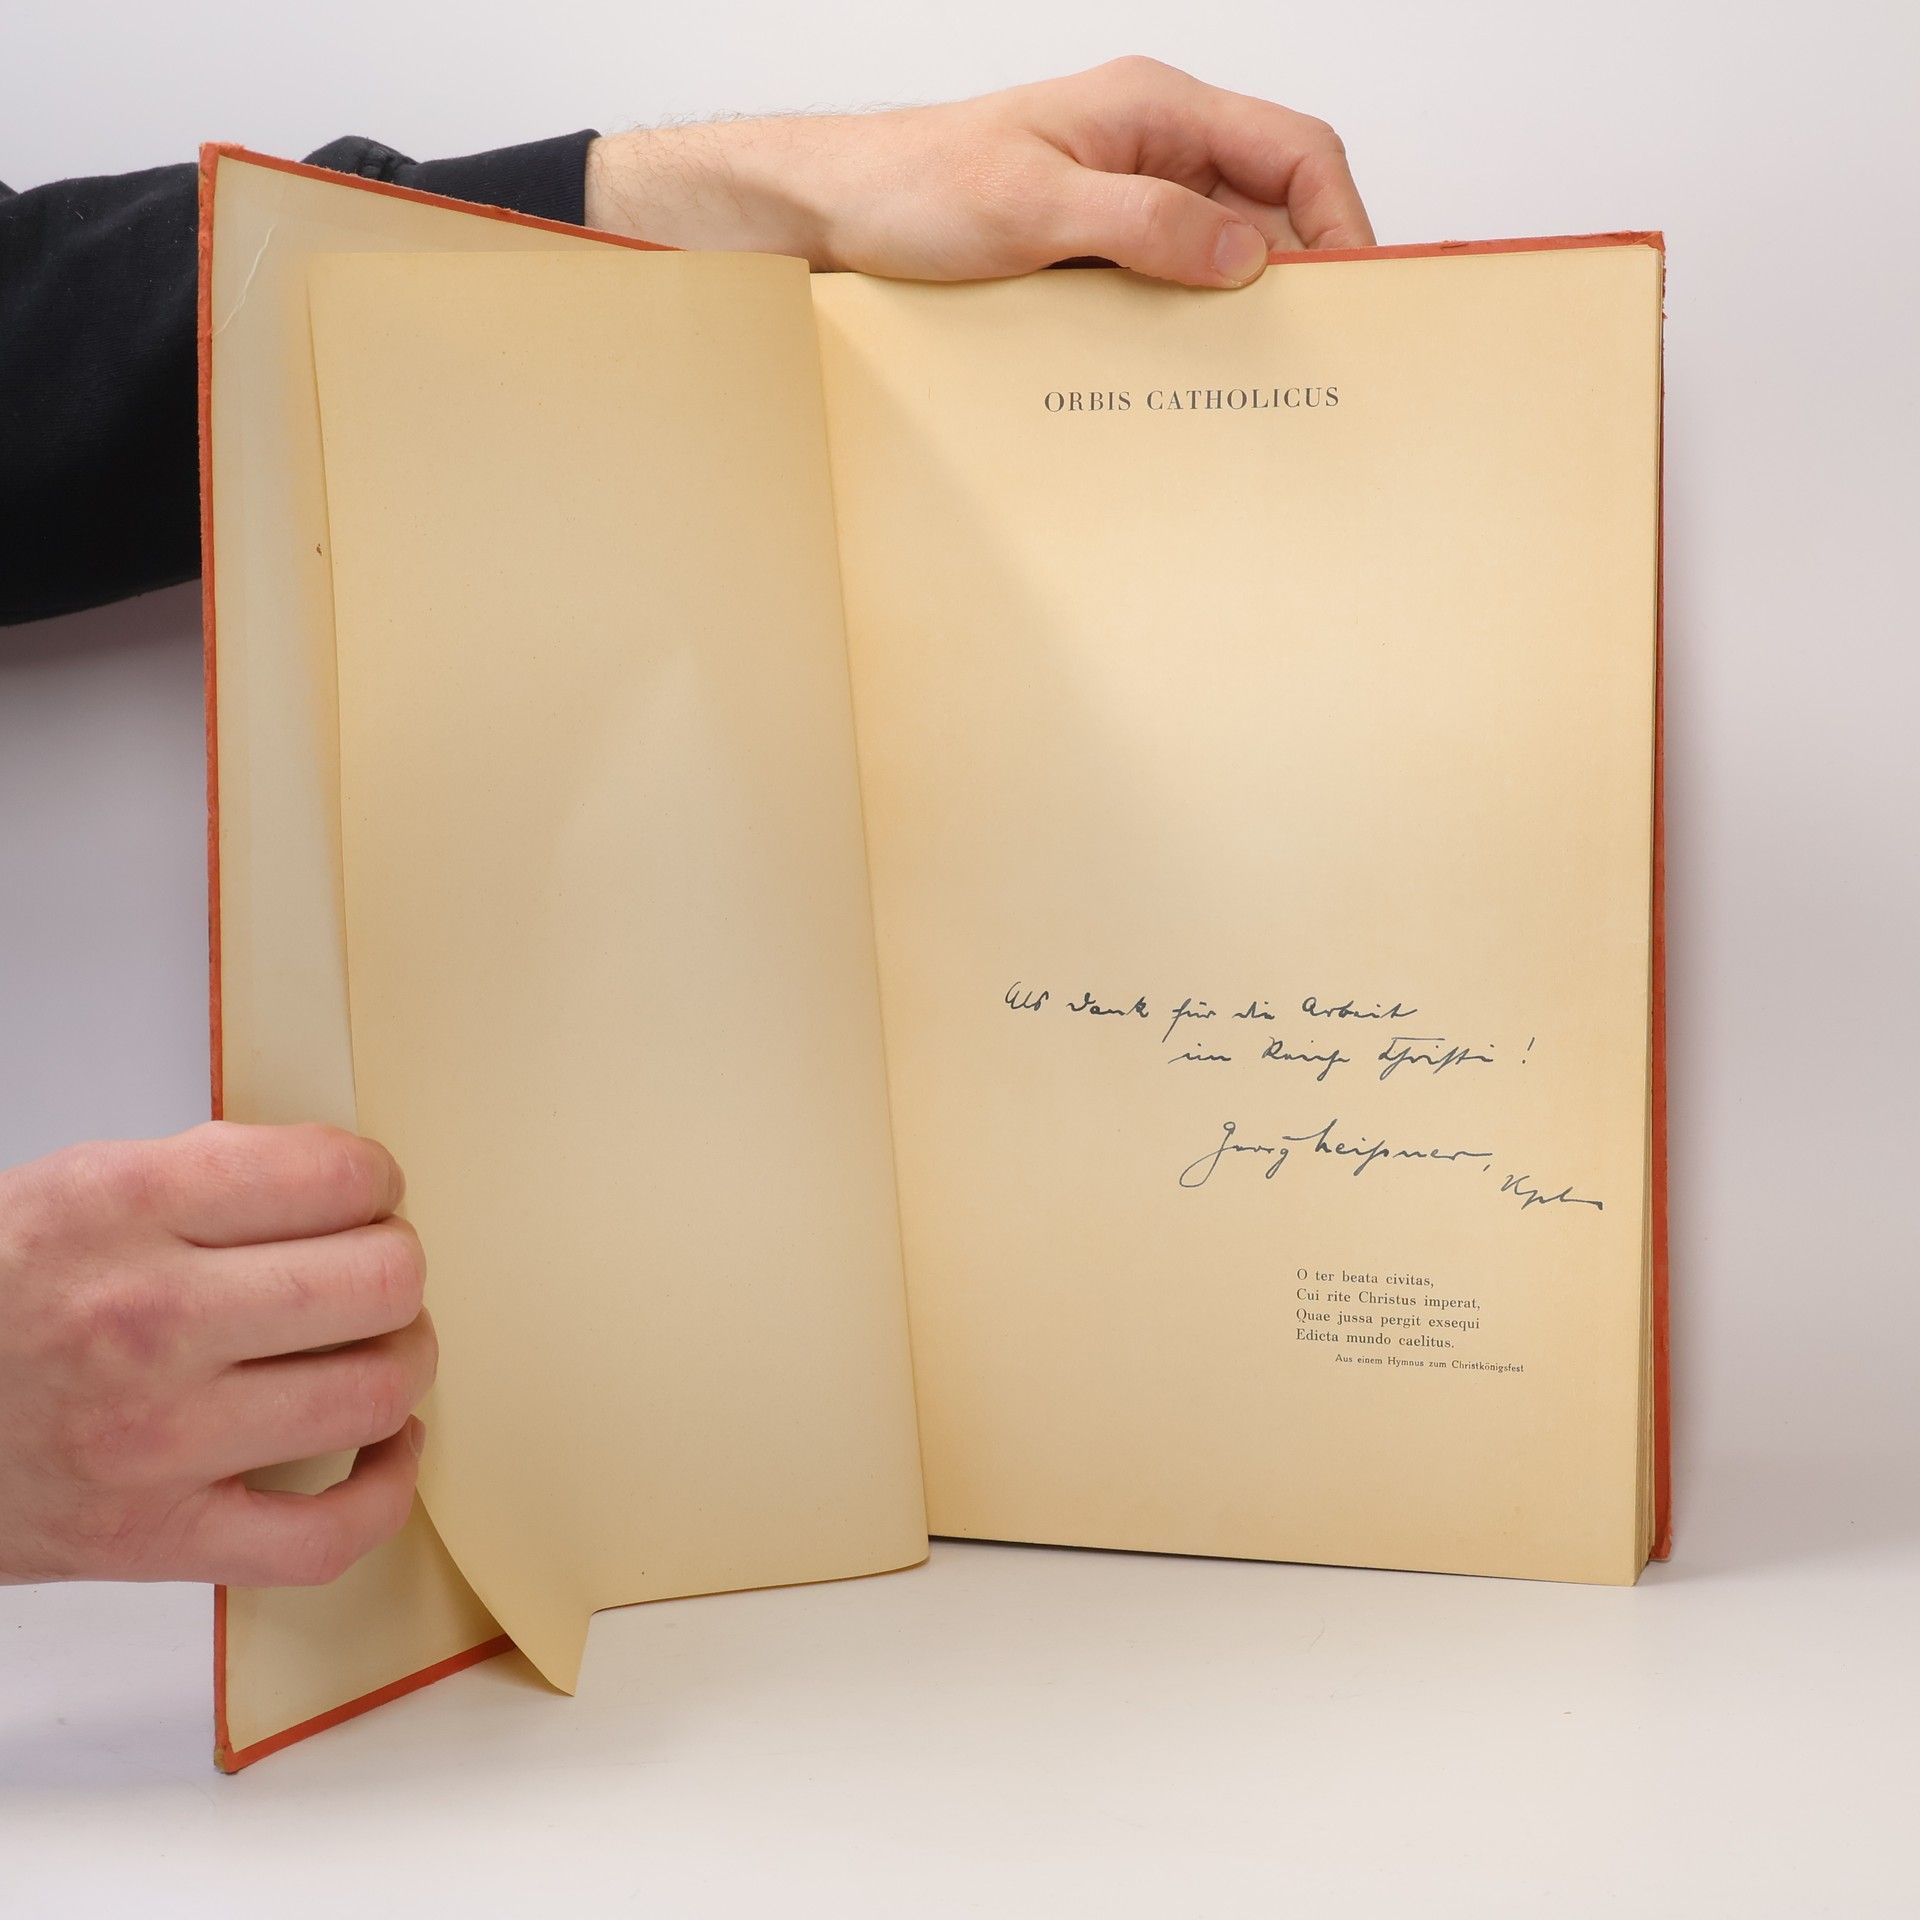 ORBIS CATHOLICUS
Als Dank für die Arbeit
im Reiche Christi !
Georg
O ter beata civitas,
Cui rite Christus imperat,
Quae jussa pergit exsequi
Edicta mundo caelitus.
Aus einem Hymnus zum Christkönigsfest